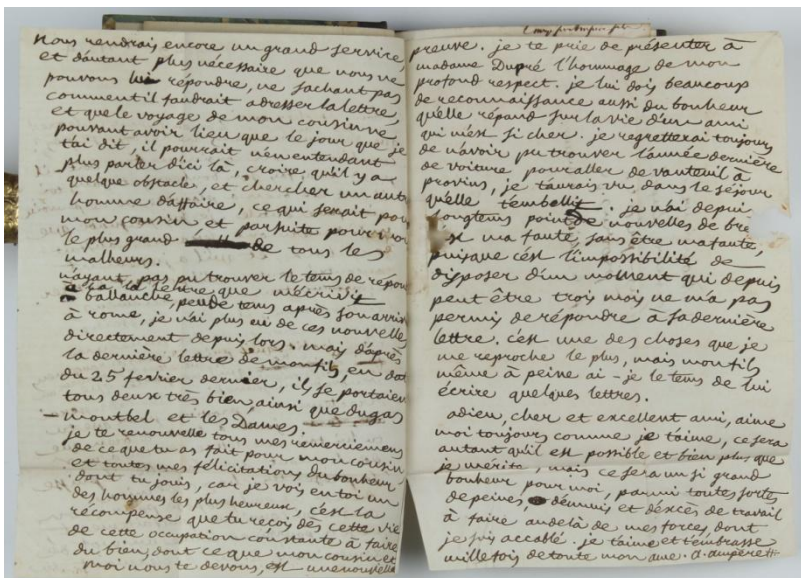 nous rendrais encore un grand service,
et d'autant plus nécessaire que nous ne
pouvons lui répondre, ne sachant pas
comment il faudrait adresser la lettre,
et que le voyage de mon cousin ne
pouvant avoir lieu que le jour que je
t'ai dit, il pourrait n'en entendant
plus parler d'ici là, croire qu'il y a
quelque obstacle, et chercher un autre
homme d'affaire, ce qui serait pour
mon cousin, et par suite pour moi
le plus grand de tous les
malheurs.
n'ayant pas pu trouver le tems de répon
à la lettre que m'écrivit
ballanche, peu de tems après son arriv
à rome, je n'ai plus eu de ces nouvelle
directement depuis lors. mais d'après
la dernière lettre de mon fils, en dat
du 25 fevrier dernier, ils se portaien
tous deux très bien, ainsi que dugas
montbel et les Dames.
je te renouvelle tous mes remerciemens
de ce que tu as fait pour mon cousin
et toutes mes félicitations du bonheur
dont tu jouis, car je vois en toi un
des hommes les plus heureux, c'est la
récompense que tu reçois dès cette vie
de cette occupation constante à faire
du bien, dont ce que mon cousin et
moi nous te devons, est une nouvelle
preuve. je te prie de présenter à
madame Dupré l'hommage de mon
profond respect. je lui dois beaucoup
de reconnaissance aussi du bonheur
qu'elle répand sur la vie d'un ami
qui m'est si cher. je regretterai toujours
de n'avoir pu trouver l'année dernière
de voiture pour aller de vanteuil à
provins, je t'aurais vu dans le séjour
qu'elle t'embellit. je n'ai depui
longtems point de nouvelles de bre
st ma faute, sans être ma faute,
puisque c'est l'impossibilité de
disposer d'un moment qui depuis
peut être trois mois ne m'a pas
permis de répondre à sa dernière
lettre. c'est une des choses que je
me reproche le plus, mais mon fils
même à peine ai-je le tems de lui
écrire quelques lettres.
adieu, cher et excellent ami, aime
moi toujours comme je t'aime, ce sera
autant qu'il est possible et bien plus que
je mérite, mais ce sera un si grand
bonheur pour moi, parmi toutes sortes
de peines, d'ennuis et d'excès de travail
à faire au delà de mes forces, dont
je suis accablé. je t'aime et t'embrasse
mille fois de toute mon ame. a. ampère